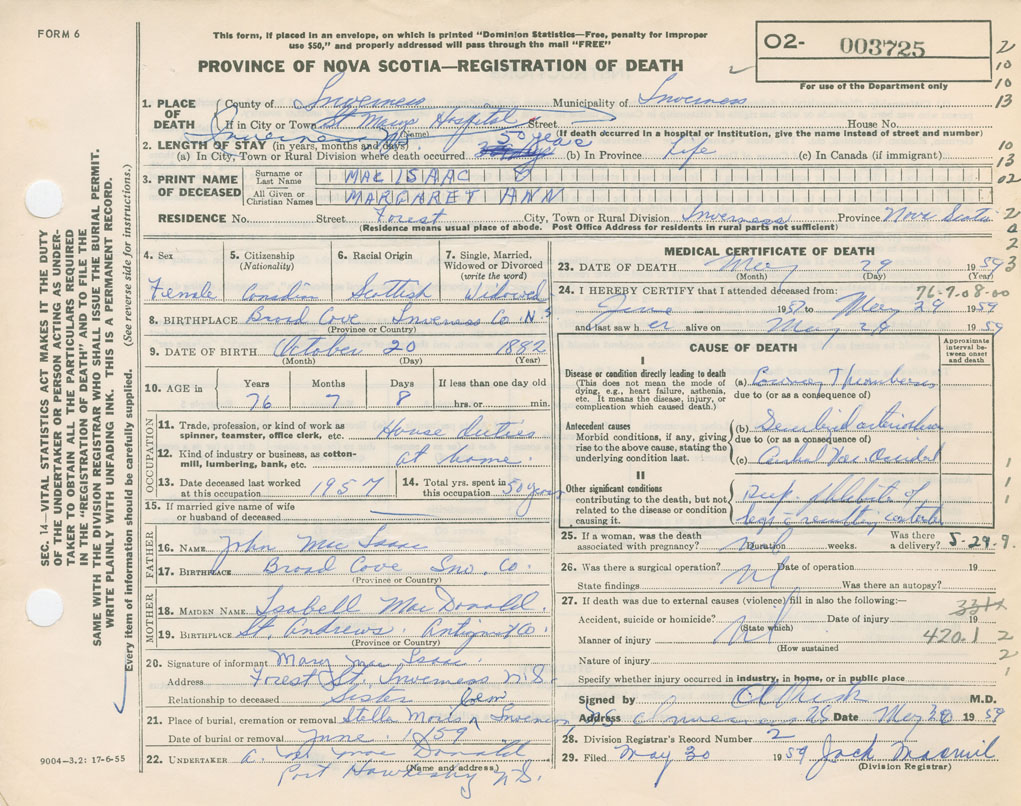 FORM 6
This form, if placed in an envelope, on which is printed "Dominion Statistics—Free, penalty for improper
use $50," and properly addressed will pass through the mail "FREE"
PROVINCE OF NOVA SCOTIA—REGISTRATION OF DEATH
02- 003725
For use of the Department only
2
10
10
13
10
13
02
SEC. 14—VITAL STATISTICS ACT MAKES IT THE DUTY
OF THE UNDERTAKER OR PERSON ACTING AS UNDER-
TAKER TO OBTAIN ALL THE PARTICULARS REQUIRED
IN THE "REGISTRATION OF DEATH" AND TO FILE THE
SAME WITH THE DIVISION REGISTRAR WHO SHALL ISSUE THE BURIAL PERMIT.
WRITE PLAINLY WITH UNFADING INK. THIS IS A PERMANENT RECORD.
Every item of information should be carefully supplied. (See reverse side for instructions.)
1. PLACE OF DEATH County of Inverness Municipality of Inverness
If in City or Town St Marys Hospital Street House No.
Inverness (Name) (If death occurred in a hospital or institution, give the name instead of street and number)
2. LENGTH OF STAY (in years, months and days) 50 years
(a) In City, Town or Rural Division where death occurred (b) In Province Life (c) In Canada (if immigrant)
3. PRINT NAME OF DECEASED Surname or Last Name MAK ISAAC
All Given or Christian Names MARGARET ANN
RESIDENCE No. Street Forest City, Town or Rural Division Inverness Province Nova Scotia
(Residence means usual place of abode. Post Office Address for residents in rural parts not sufficient)
4. Sex 5. Citizenship (Nationality) 6. Racial Origin 7. Single, Married, Widowed or Divorced (write the word)
Female Canadian Scottish Widowed
8. BIRTHPLACE Broad Cove Inverness Co. N.S
(Province or Country)
9. DATE OF BIRTH October 20 1882
(Month) (Day) (Year)
10. AGE in Years Months Days If less than one day old
76 7 8 hrs. or min.
OCCUPATION
11. Trade, profession, or kind of work as spinner, teamster, office clerk, etc. House duties
12. Kind of industry or business, as cotton-mill, lumbering, bank, etc. at home
13. Date deceased last worked at this occupation 1957 14. Total yrs. spent in this occupation 50 years
15. If married give name of wife or husband of deceased
FATHER
16. NAME John Mac Isaac
17. BIRTHPLACE Broad Cove Inv. Co.
(Province or Country)
MOTHER
18. MAIDEN NAME Isabell MacDonald.
19. BIRTHPLACE St. Andrews. Antigonish Co.
(Province or Country)
20. Signature of informant Mary Mac Isaac.
Address Forest St. Inverness N.S.
Relationship to deceased Sister
21. Place of burial, cremation or removal Stella Maris Cem Inverness NS
Date of burial or removal June. 1 1959
22. UNDERTAKER MacDonald
Port Hawkesbury N.S.
(Name and address)
9004-3.2: 17-6-55
MEDICAL CERTIFICATE OF DEATH
23. DATE OF DEATH May 29 1959
(Month) (Day) (Year)
24. I HEREBY CERTIFY that I attended deceased from: 76-7.08-00
June 1957 to May 29 1959
and last saw her alive on May 28 1959
CAUSE OF DEATH
Approximate interval between onset and death
I
Disease or condition directly leading to death
(This does not mean the mode of dying, e.g., heart failure, asthenia, etc. It means the disease, injury, or complication which caused death.)
(a) Coronary Thrombosis
due to (or as a consequence of)
Antecedent causes
Morbid conditions, if any, giving rise to the above cause, stating the underlying condition last.
(b)
due to (or as a consequence of)
(c)
II
Other significant conditions
contributing to the death, but not related to the disease or condition causing it.
25. If a woman, was the death associated with pregnancy? Duration weeks. Was there a delivery?
5-29.9.
26. Was there a surgical operation? Date of operation 19
State findings Was there an autopsy?
27. If death was due to external causes (violence) fill in also the following:—
Accident, suicide or homicide? Date of injury 19
(State which)
Manner of injury 420.1 2
(How sustained
Nature of injury
Specify whether injury occurred in industry, in home, or in public place
Signed by M.D.
Address Inverness NS Date May 30 1959
28. Division Registrar's Record Number 2
29. Filed May 30 1959
(Division Registrar)